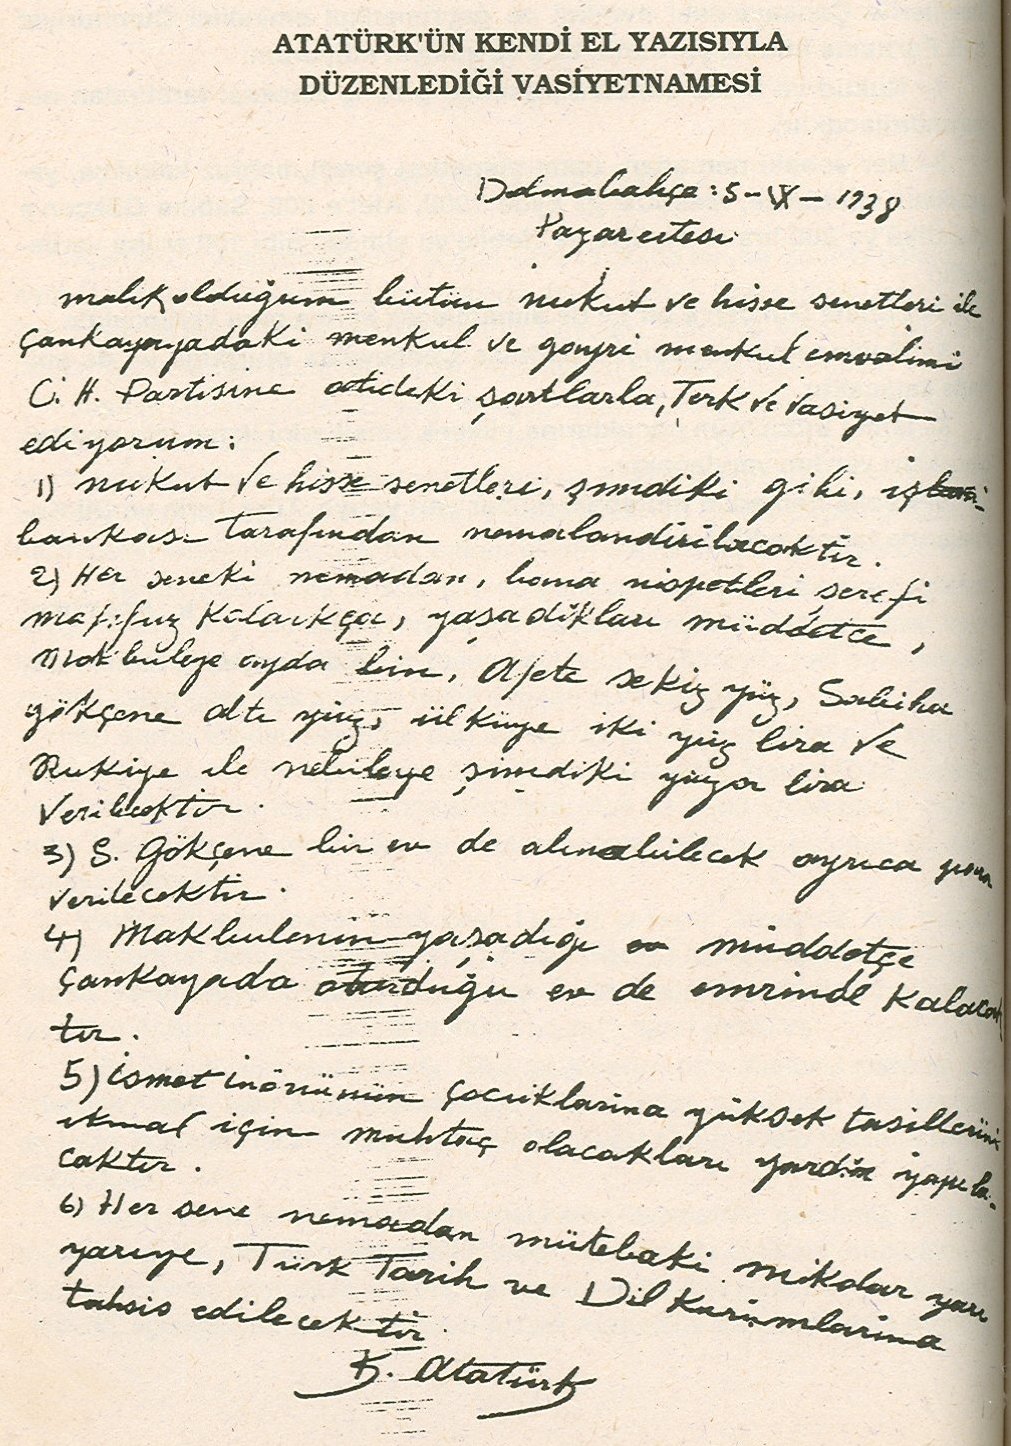 ATATÜRK'ÜN KENDİ EL YAZISIYLA
DÜZENLEDİĞİ VASİYETNAMESİ
Dolmabahçe: 5-IX-1938
Pazarertesi
malik olduğum bütün nukut ve hisse senetleri ile
Çankayadaki menkul ve gayri menkul emvalimi
C. H. Partisine atideki şartlarla, Terk ve vasiyet
ediyorum:
1) nukut ve hisse senetleri, şimdiki gibi, iş
bankası tarafından nemalandırılacaktır.
2) Her seneki nemadan, bana nispetleri şerefi
mahfuz kaldıkça, yaşadıkları müddetce,
Makbuleye ayda bin, Afete sekiz yüz, Sabiha
gökçene altı yüz, ülküye iki yüz lira ve
Rukiye ile nebileye şimdiki yüzer lira
verilecektir.
3) S. Gökçene bir ev de alınabilecek ayrıca para
verilecektir.
4) Makbulenin yaşadığı müddetçe
Çankayada oturduğu ev de emrinde kalacak
tır.
5) ismet inönünün çocuklarına yüksek tasillerini
ikmal için muhtaç olacakları yardım yapıla-
caktır.
6) Her sene nemadan mütebaki mikdar yarı
yarıye, Türk Tarih ve Dil Kurumlarına
tahsis edilecektir.
K. Atatürk